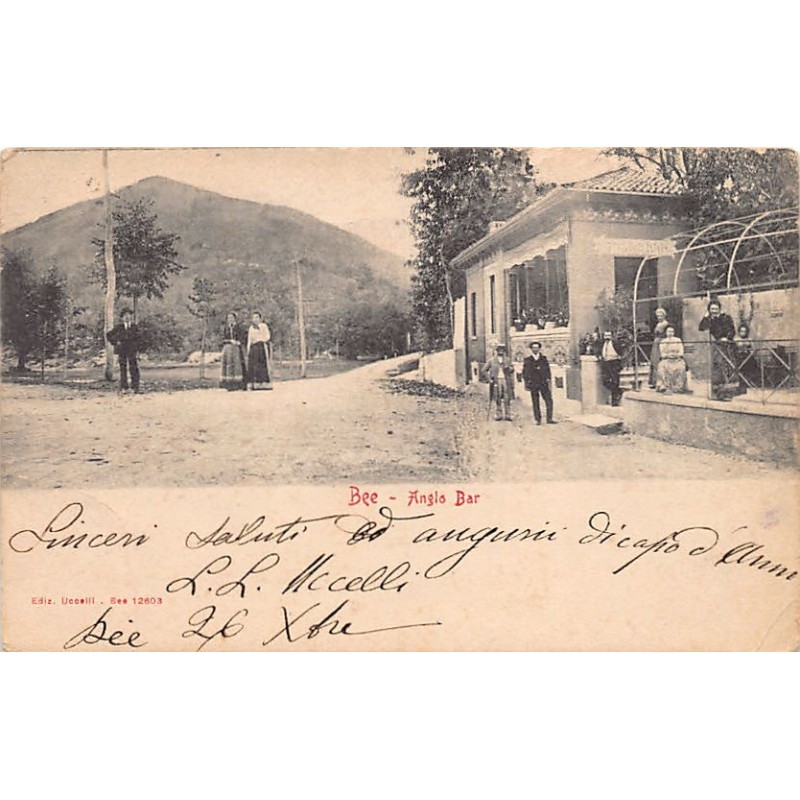 Bee - Anglo Bar
Sinceri saluti ed augurii di capo d'Anno
L. L. Uccelli
Ediz. Uccelli . Bee 12603
Bée 26 Xbre